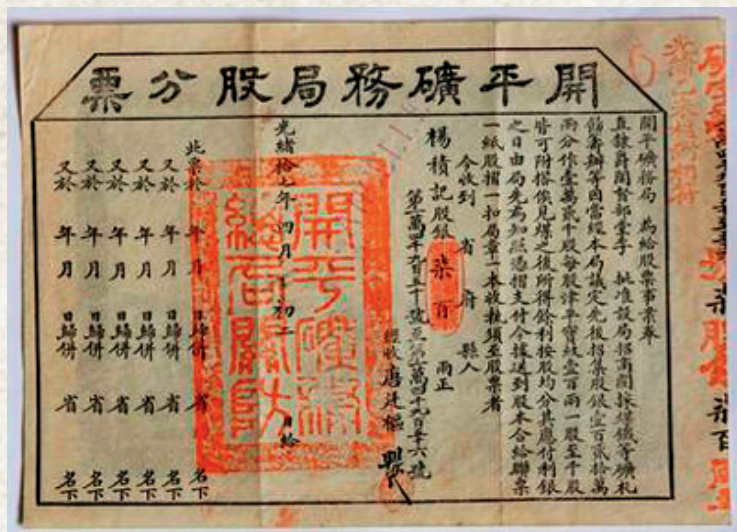 開平礦務局股分票
開平礦務局 為給股票事案奉
直隸爵閣督部堂李 批准設局招商開採煤鐵等礦札
飭籌辦等因當經本局議定先後招集股銀壹百貳拾萬
兩分作壹萬貳千股每股津平寶紋壹百兩一股至千股
皆可附搭俟見煤之後所得餘利按股均分其應付利銀
之日由局先為知照憑摺支付今據送到股本合給聯票
一紙股摺一扣局章一本收執須至股票者
今收到 省 府 縣人
楊積記股銀 柒百 兩正
第一萬四千九百五十號至第一萬四千九百五十六號
經收 唐廷樞
光緒拾七年四月 初二 日給
開平礦務總局關防
此票於 年 月 日歸併 省 名下
又於 年 月 日歸併 省 名下
又於 年 月 日歸併 省 名下
又於 年 月 日歸併 省 名下
又於 年 月 日歸併 省 名下
又於 年 月 日歸併 省 名下